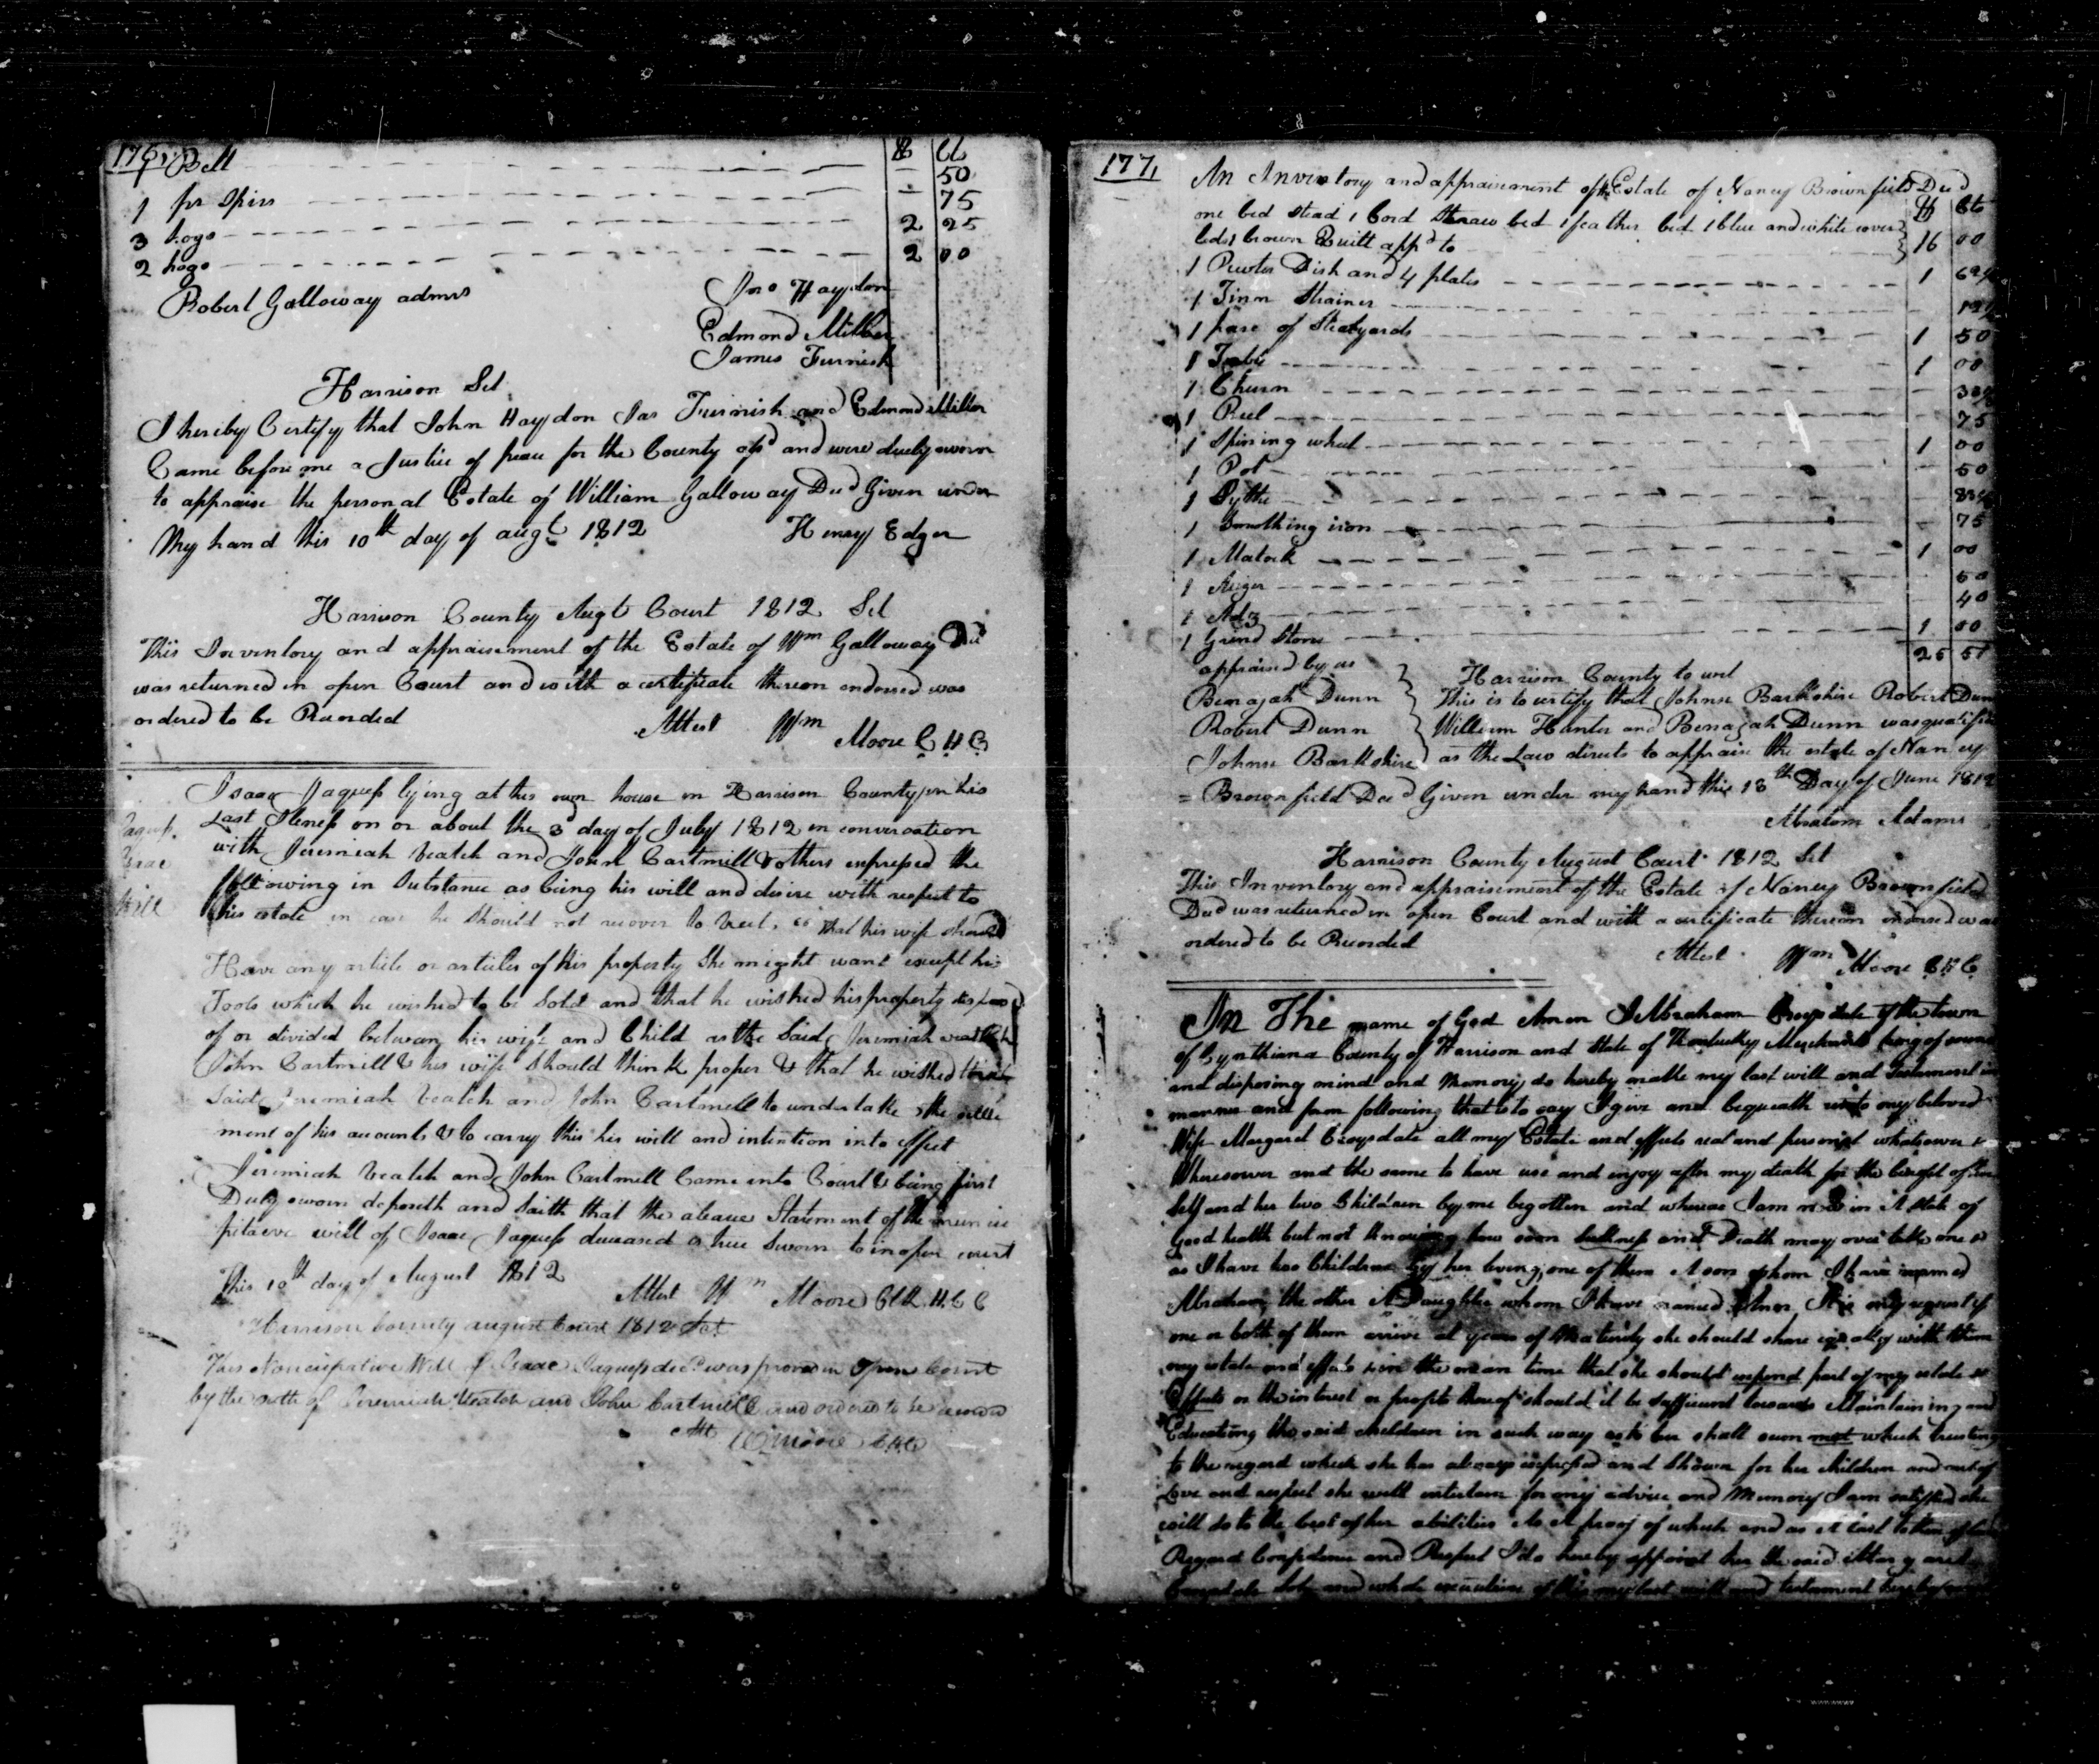 176
1 Bell 50
1 pr Spirs 75
3 hogs 2 25
2 hogs 2 00
Robert Galloway admrs
Jno Haydon
Edmond Miller
James Furnish
Harrison Sct
I hereby Certify that John Haydon Jas Furnish and Edmond Miller
Came before me a Justice of peace for the County afsd and were duely sworn
to appraise the personal Estate of William Galloway Decd Given under
My hand this 10th day of augt 1812 Henry Edger
Harrison County Augt Court 1812 Sct
This Inventory and appraisement of the Estate of Wm Galloway Decd
was returned in open Court and with a certificate thereon endorsed was
ordered to be Recorded
Attest Wm Moore C H C
Jaquess
Isaac
Will
Isaac Jaquess lying at his own house in Harrison County in his
Last Ilness on or about the 3d day of July 1812 in conversation
with Jeremiah Veatch and John Cartmill & others expressed the
following in Substance as being his will and desire with respect to
his estate in case he should not recover to wit, "That his wife should
Have any article or articles of his property she might want except his
Tools which he wished to be Sold and that he wished his property disposed
of or divided between his wife and Child as the Said Jeremiah Veatch
John Cartmill & his wife should think proper & that he wished the
Said Jeremiah Veatch and John Cartmell to undertake the settle
ment of his accounts & to carry this his will and intention into effect
Jeremiah Veatch and John Cartmell Came into Court & being first
Duly sworn deposeth and Saith that the above Statement of the nuncu
pitaeve will of Isaac Jaquess deceased is true Sworn to in open court
This 10th day of August 1812
Attest Wm Moore Clk H C C
Harrison County august Court 1812 Sct
This Noncupative Will of Isaac Jaquess decd was proved in Open Court
by the oath of Jeremiah Veatch and John Cartmill and ordered to be
Att Moore CHC
177
An Inventory and appraisement of the Estate of Nancy Brownfield Decd
one bed stead 1 Cord Straw bed 1 feather bed 1 blue and white cover
led 1 brown Quilt appd to 16 00
1 Pewter Dish and 4 plates 1 62½
1 Tinn Strainer 12½
1 pare of Steelyards 1 50
1 Table 1 00
1 Churn
1 Reel 75
1 Spining wheel 1 00
1 Pot 50
1 Sythe
1 Smothing iron 75
1 Matock 1 00
1 Auger 50
1 Adz 40
1 Grind Stone 1 00
25 57
appraised by us
Benajah Dunn
Robert Dunn
Johnse Barkshire
Harrison County to wit
This is to certify that Johnse Barkshire Robert Dunn
William Hunter and Benajah Dunn was qualified
as the Law directs to appraise the estate of Nancy
= Brownfield Decd Given under my hand this 18th Day of June 1812
Abraham Adams
Harrison County August Court 1812 Sct
This Inventory and appraisement of the Estate of Nancy Brownfield
Decd was returned in open Court and with a certificate thereon endorsed was
ordered to be Recorded
Attest Wm Moore C H C
In The name of God Amen I Abraham Croysdale of the town
of Cynthiana County of Harrison and State of Kentucky being of sound
and disposing mind and Memory, do hereby make my last will and Testament in
manner and form following that is to say I give and bequeath unto my beloved
Wife Margaret Croysdale all my Estate and effects real and personal whatsoever &
Wheresoever and the same to have use and enjoy after my death for the benefit of her
Self and her two Children by me begotten and whereas I am now in A State of
good health but not Knowing how soon Sickness and Death may over take me &
as I have two Children by her living, one of them A son whom I have named
Abraham, the other A Daughter whom I have named request if
one or both of them arrive at years of Maturity she should share equally with them
my estate and effects & in the mean time that she should expend part of my estate &
Effects or the interest or profits thereof should it be Sufficient towards Maintaining and
Educating the said children in such way as to her shall seem meet which trusting
to the regard which she has always expressed and Shown for her children and out of
Love and respect she will entertain for my advice and Memory I am satisfied she
will do to the best of her abilities As A proof of which and as A last token of
Regard Confidence and Respect I do hereby appoint her the said Margaret
Croysdale Sole and whole executrix of this my last will and testament hereby